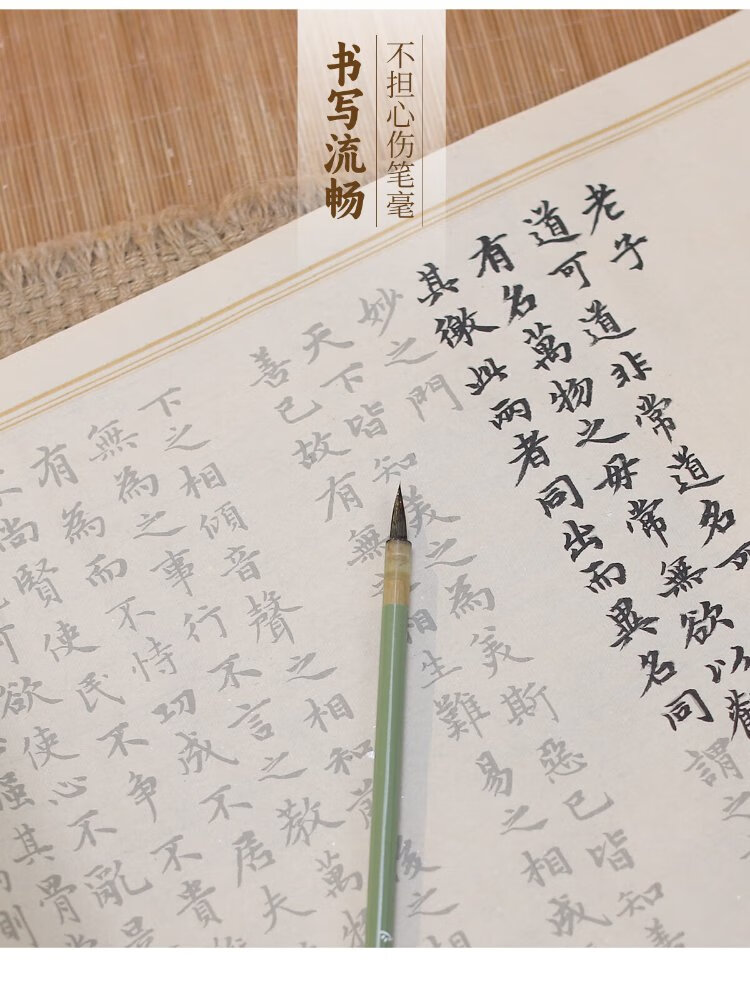 书写流畅
不担心伤笔毫
老子
道可道非常道名可
有名萬物之母常無欲以觀
其徼此兩者同出而異名同謂之
妙之門
天下皆知美之為美斯惡已皆知善
善已故有無之相生難易之相成
下之相傾音聲之相和前後之
無為之事行不言之教萬物
有為而不恃功成不居夫
尚賢使民不争不貴
可欲使心不亂是
强其骨常
則